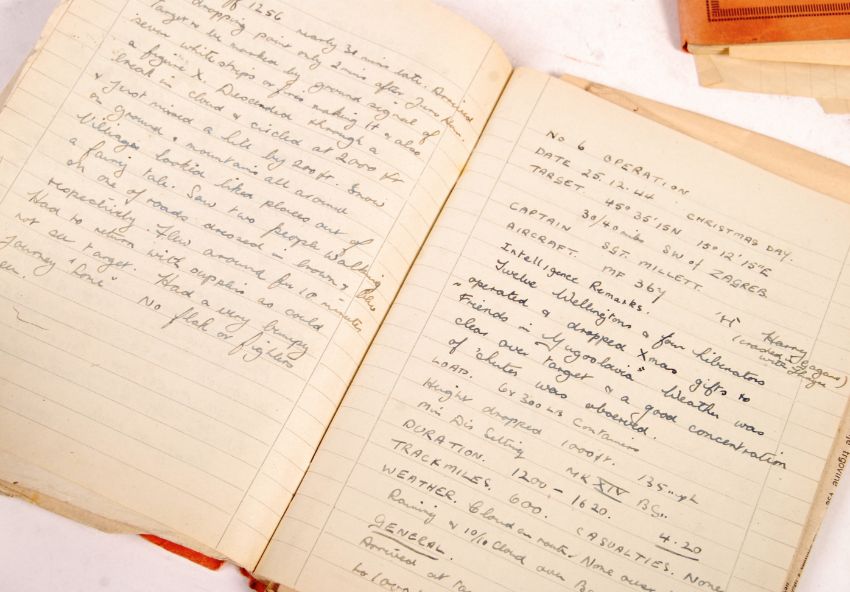 off 1256 nearly 31 mins late. Arrived
dropping point only 2 mins after Time
Target to be marked by ground signal of
seven white strips or fires making it & also
a figure X. Descended through a
break in cloud & circled at 2000 ft
& just missed a hill by 200ft. Snow
on ground & mountains all around
Villages looked like places out of
a fairy tale. Saw two people walking
on one of roads dressed in brown & blue
respectively. Flew around for 10 minutes
Had to return with supplies as could
not see target. Had a very bumpy
journey home
No flak or fighters
No 6 OPERATION
DATE 25.12.44 CHRISTMAS DAY.
TARGET. 45° 35'15N 15° 12'15"E
30/40 miles SW of ZAGREB
CAPTAIN SGT. MILLETT.
AIRCRAFT. MF 364 'H' Harry
Intelligence Remarks.
Twelve Wellingtons & four Liberators
operated & dropped Xmas gifts to
"Friends in Yugoslavia" Weather was
clear over target & a good concentration
of 'chutes was observed.
LOAD. 6 x 300 LB Containers
Height dropped 1000ft. 135 mph
Min Dis Setting MK XIV BS.
DURATION. 1200 - 1620. 4.20
TRACKMILES. 600. CASUALTIES. None
WEATHER. Cloud en route. None over
Raining & 10/10 cloud over
GENERAL.
Arrived at
to
trgovine